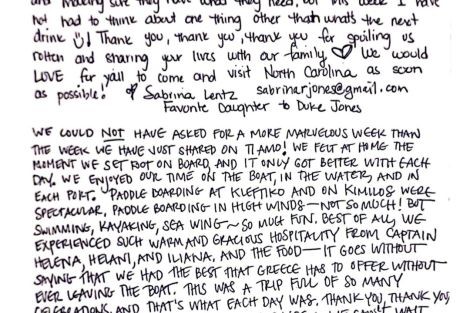 and making sure they have what they need, but this week I have
not had to think about one thing other than what's the next
drink ! Thank you, thank you, thank you for spoiling us
rotten and sharing your lives with our family ♡ We would
LOVE for yall to come and visit North Carolina as soon
as possible! Sabrina Lentz sabrinarjones@gmail.com
Favorite Daughter to Duke Jones
WE COULD NOT HAVE ASKED FOR A MORE MARVELOUS WEEK THAN
THE WEEK WE HAVE JUST SHARED ON TI AMO! WE FELT AT HOME THE
MOMENT WE SET FOOT ON BOARD, AND IT ONLY GOT BETTER WITH EACH
DAY. WE ENJOYED OUR TIME ON THE BOAT, IN THE WATER, AND IN
EACH PORT. PADDLE BOARDING AT KLEFTIKO AND ON KIMILOS WERE
SPECTACULAR, PADDLE BOARDING IN HIGH WINDS — NOT SO MUCH! BUT
SWIMMING, KAYAKING, SEA WING ~ SO MUCH FUN. BEST OF ALL, WE
EXPERIENCED SUCH WARM AND GRACIOUS HOSPITALITY FROM CAPTAIN
HELENA, HELANI, AND ILIANA, AND THE FOOD — IT GOES WITHOUT
SAYING THAT WE HAD THE BEST THAT GREECE HAS TO OFFER WITHOUT
EVER LEAVING THE BOAT. THIS WAS A TRIP FULL OF SO MANY
CELEBRATIONS, AND THAT'S WHAT EACH DAY WAS. THANK YOU, THANK YOU,
WE CAN'T WAIT